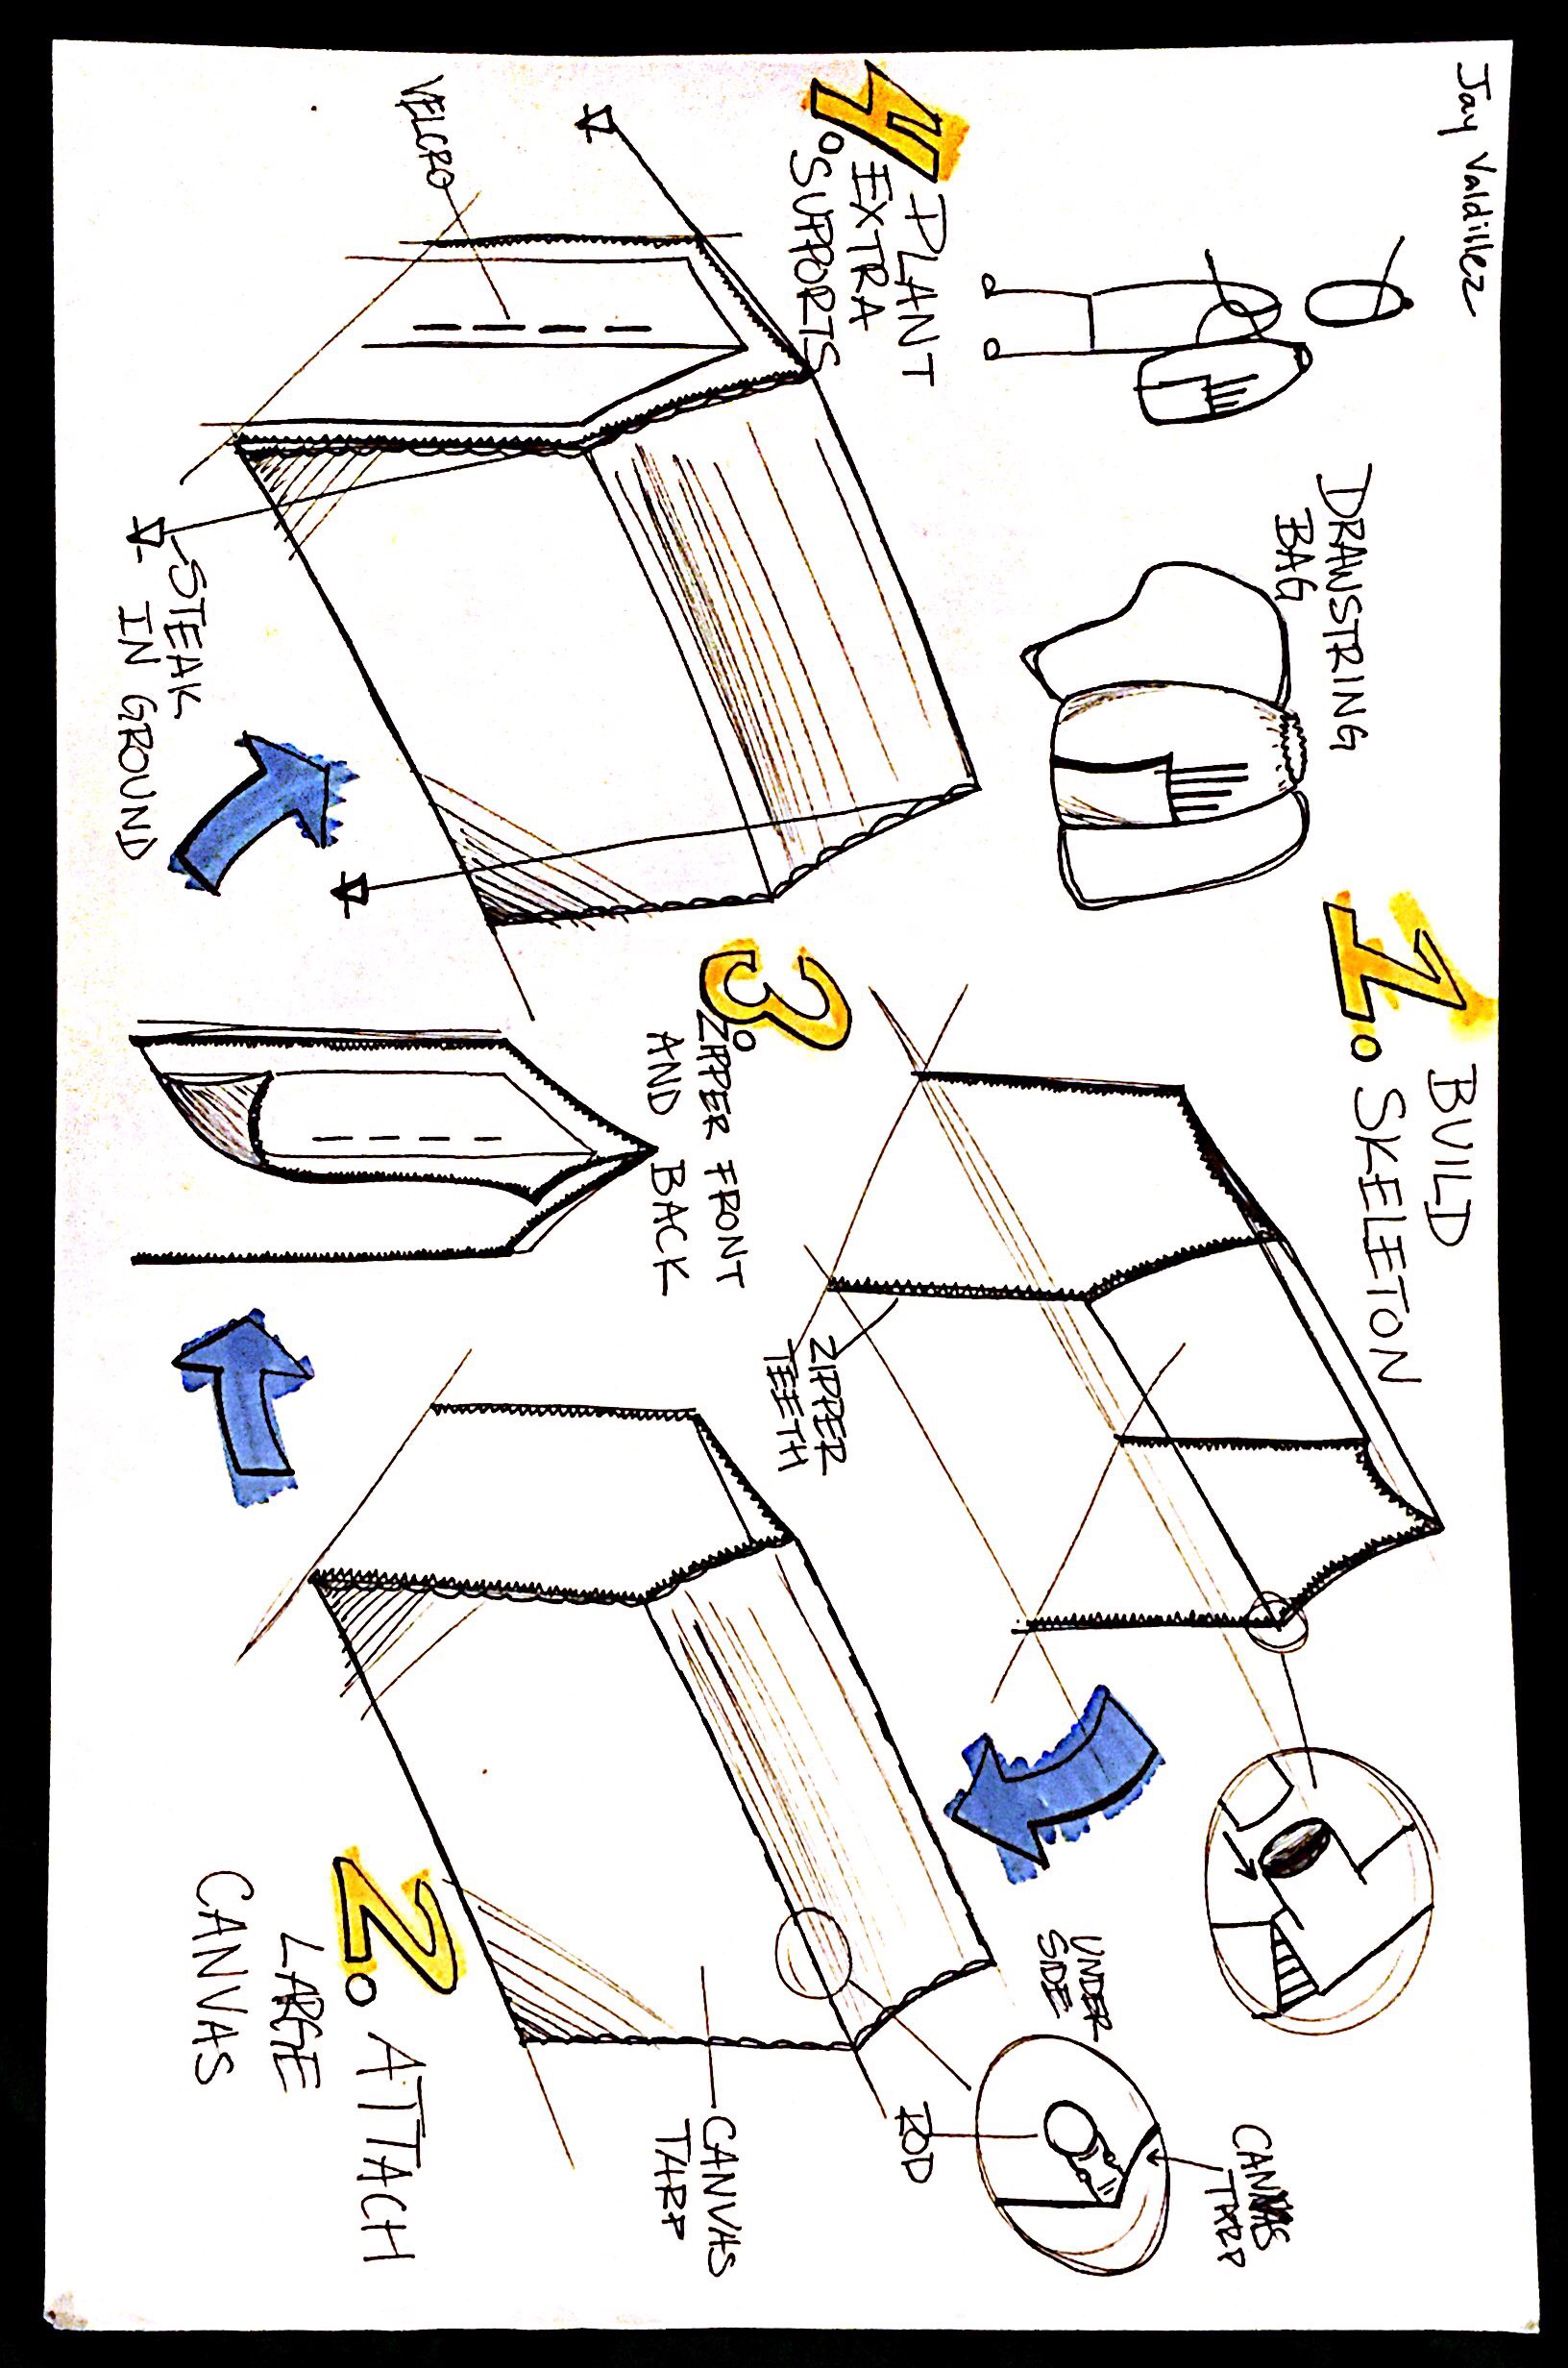 Jay Valdillez
DRAWSTRING
BAG
1. BUILD
SKELETON
ZIPPER
TEETH
UNDER
SIDE
CANVAS
TARP
ROD
CANVAS
TARP
2. ATTACH
LARGE
CANVAS
3. ZIPPER FRONT
AND BACK
4. PLANT
EXTRA
SUPPORTS
VELCRO
STEAK
IN GROUND